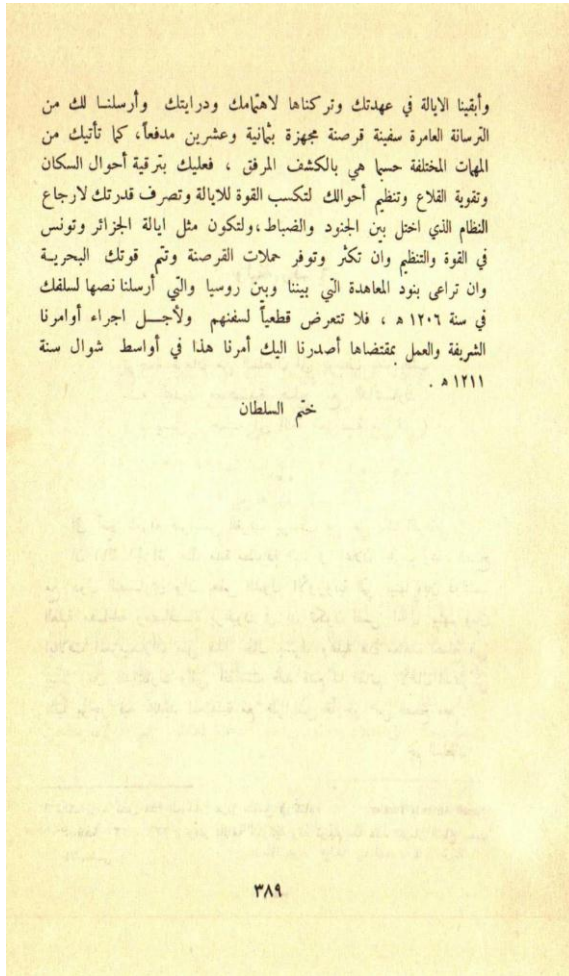 وأبقينا الايالة في عهدتك وتركناها لاهتمامك ودرايتك وأرسلنا لك من
الترسانة العامرة سفينة قرصنة مجهزة بثمانية وعشرين مدفعاً، كما تأتيك من
المهات المختلفة حسبا هي بالكشف المرفق ، فعليك بترقية أحوال السكان
وتقوية القلاع وتنظيم أحوالك لتكسب القوة للايالة وتصرف قدرتك لارجاع
النظام الذي اختل بين الجنود والضباط،ولتكون مثل ايالة الجزائر وتونس
في القوة والتنظيم وان تكثر وتوفر حملات القرصنة وتتم قوتك البحرية
وان تراعى بنود المعاهدة التي بيننا وبين روسيا والتي أرسلنا نصها لسلفك
في سنة ١٢٠٦ ه ، فلا تتعرض قطعياً لسفنهم ولأجل اجراء أوامرنا
الشريفة والعمل بمقتضاها أصدرنا اليك أمرنا هذا في أواسط شوال سنة
١٢١١ ه .
ختم السلطان
٣٨٩